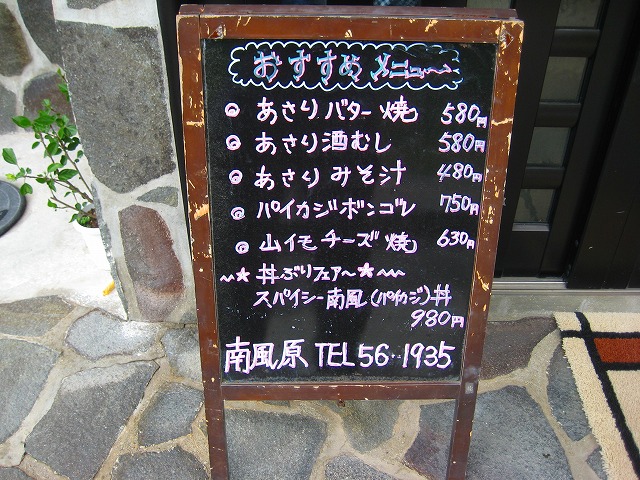 おすすめメニュー
あさりバター焼 580円
あさり酒むし 580円
あさりみそ汁 480円
パイカジボンゴレ 750円
山イモチーズ焼 630円
～★丼ぶりフェア～★～
スパイシー南風(パイカジ)丼
980円
南風原 TEL56-1935